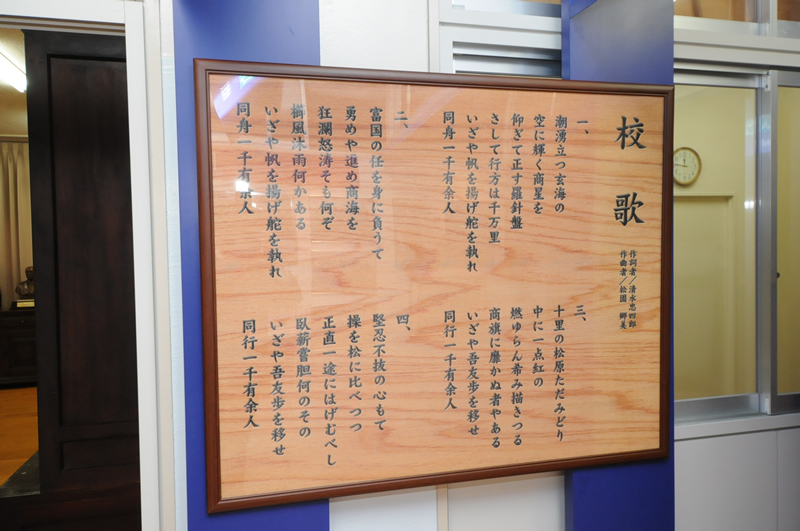 校歌
作詞者／清水忠四郎
作曲者／松園 郷美
一、
潮湧立つ玄海の
空に輝く商星を
仰ぎて正す羅針盤
さして行方は千万里
いざや帆を揚げ舵を執れ
同舟一千有余人
二、
富国の任を身に負うて
勇めや進め商海を
狂瀾怒涛そも何ぞ
櫛風沐雨何かある
いざや帆を揚げ舵を執れ
同舟一千有余人
三、
十里の松原ただみどり
中に一点紅の
燃ゆらん希み描きつる
商旗に靡かぬ者やある
いざや吾友歩を移せ
同行一千有余人
四、
堅忍不抜の心もて
操を松に比べつつ
正直一途にはげむべし
臥薪嘗胆何のその
いざや吾友歩を移せ
同行一千有余人